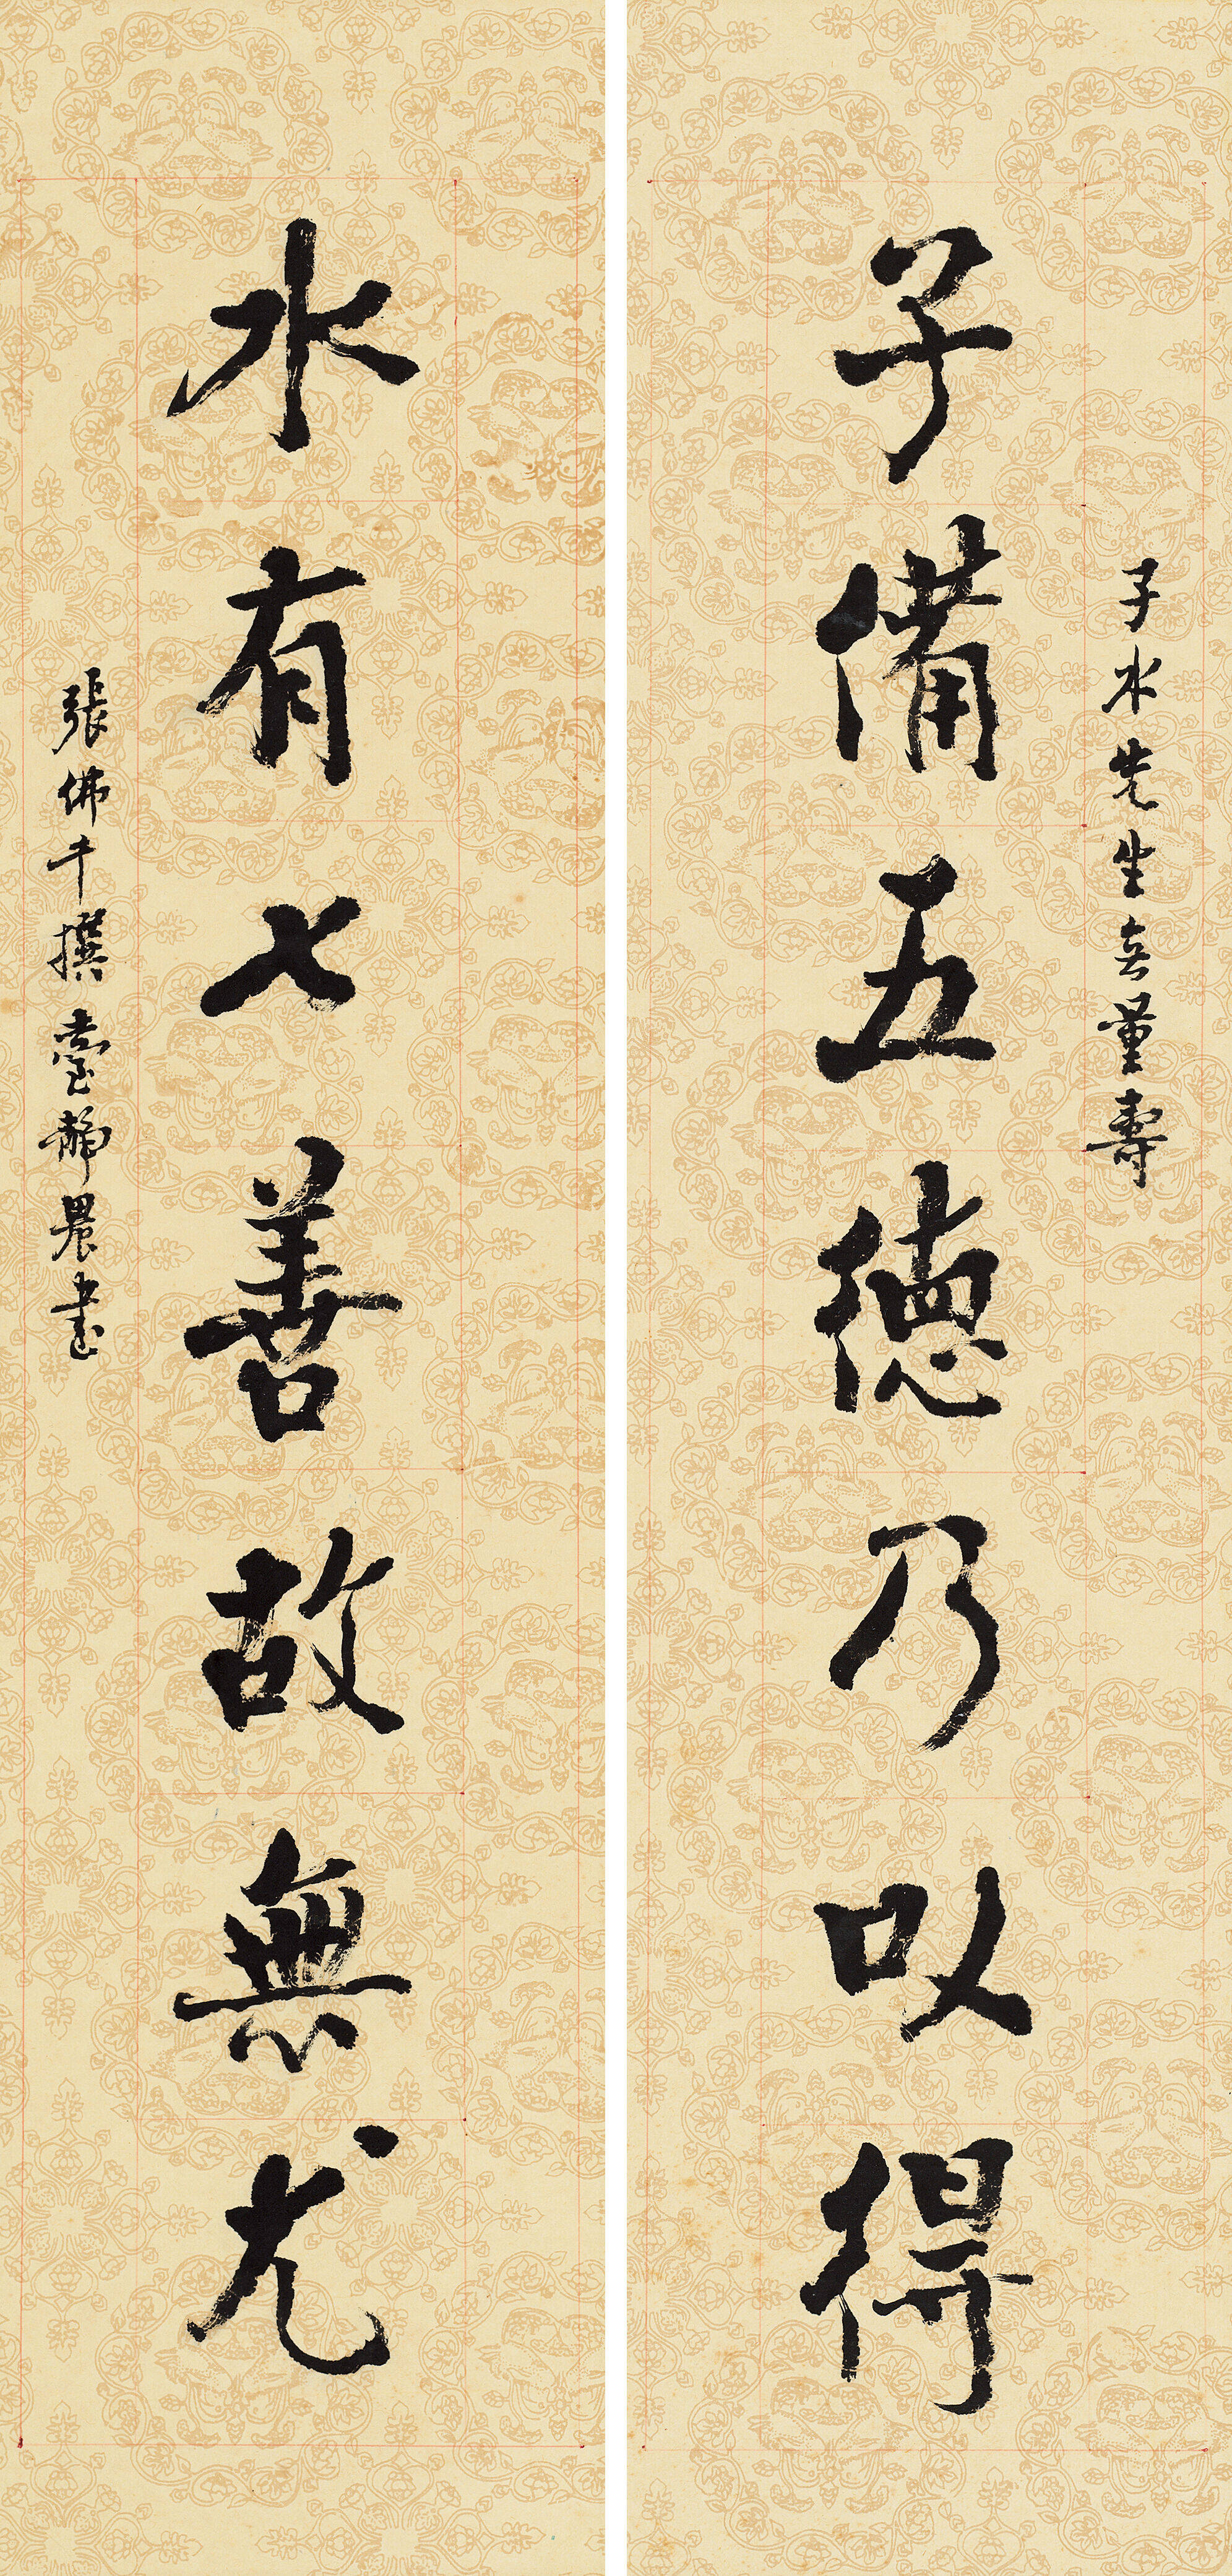 子水先生無量壽
子備五德乃以得
水有七善故無尤
張佛千撰 臺靜農書